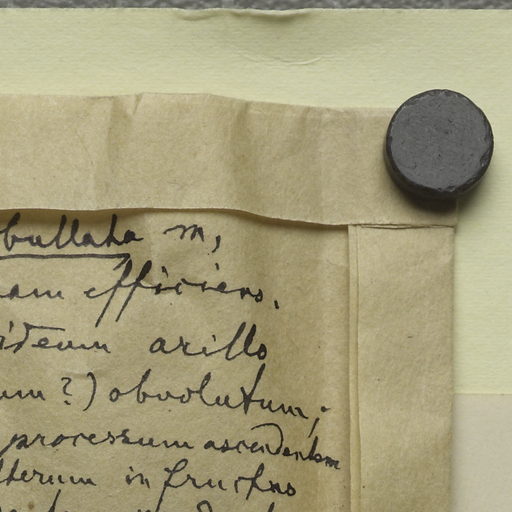 bullata m,
am efficiens.
ideum arillo
um?) obvolutum;
processum ascendentem
lterum in fructus